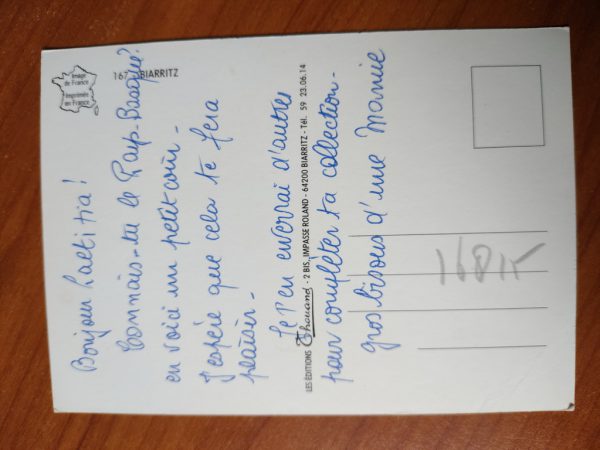 Image
de France
Imprimée
en France
BIARRITZ
Bonjour Laetitia!
Connais-tu le Pays-Basque?
en voici un petit coin -
J'espère que cela te fera
plaisir -
Je t'en enverrai d'autres
pour compléter ta collection -
gros bisous d'une Mamie
LES ÉDITIONS Thouand - 2 BIS, IMPASSE ROLAND - 64200 BIARRITZ - Tél. 59 23.06.14